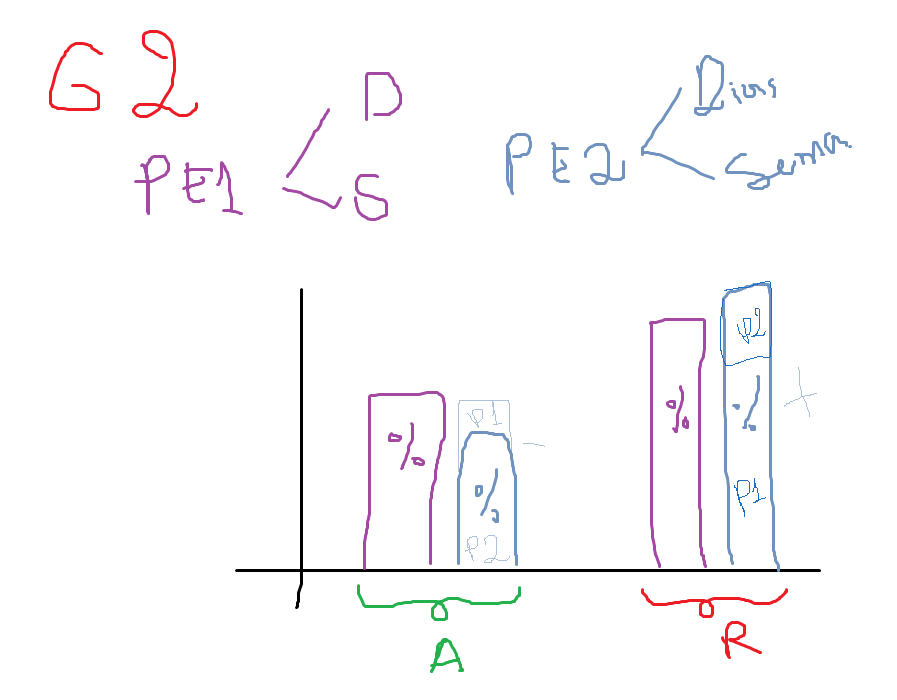 G2
PE1
D
S
PE2
Dias
Semana
%
P1
%
P2
%
P2
%
P1
A
R